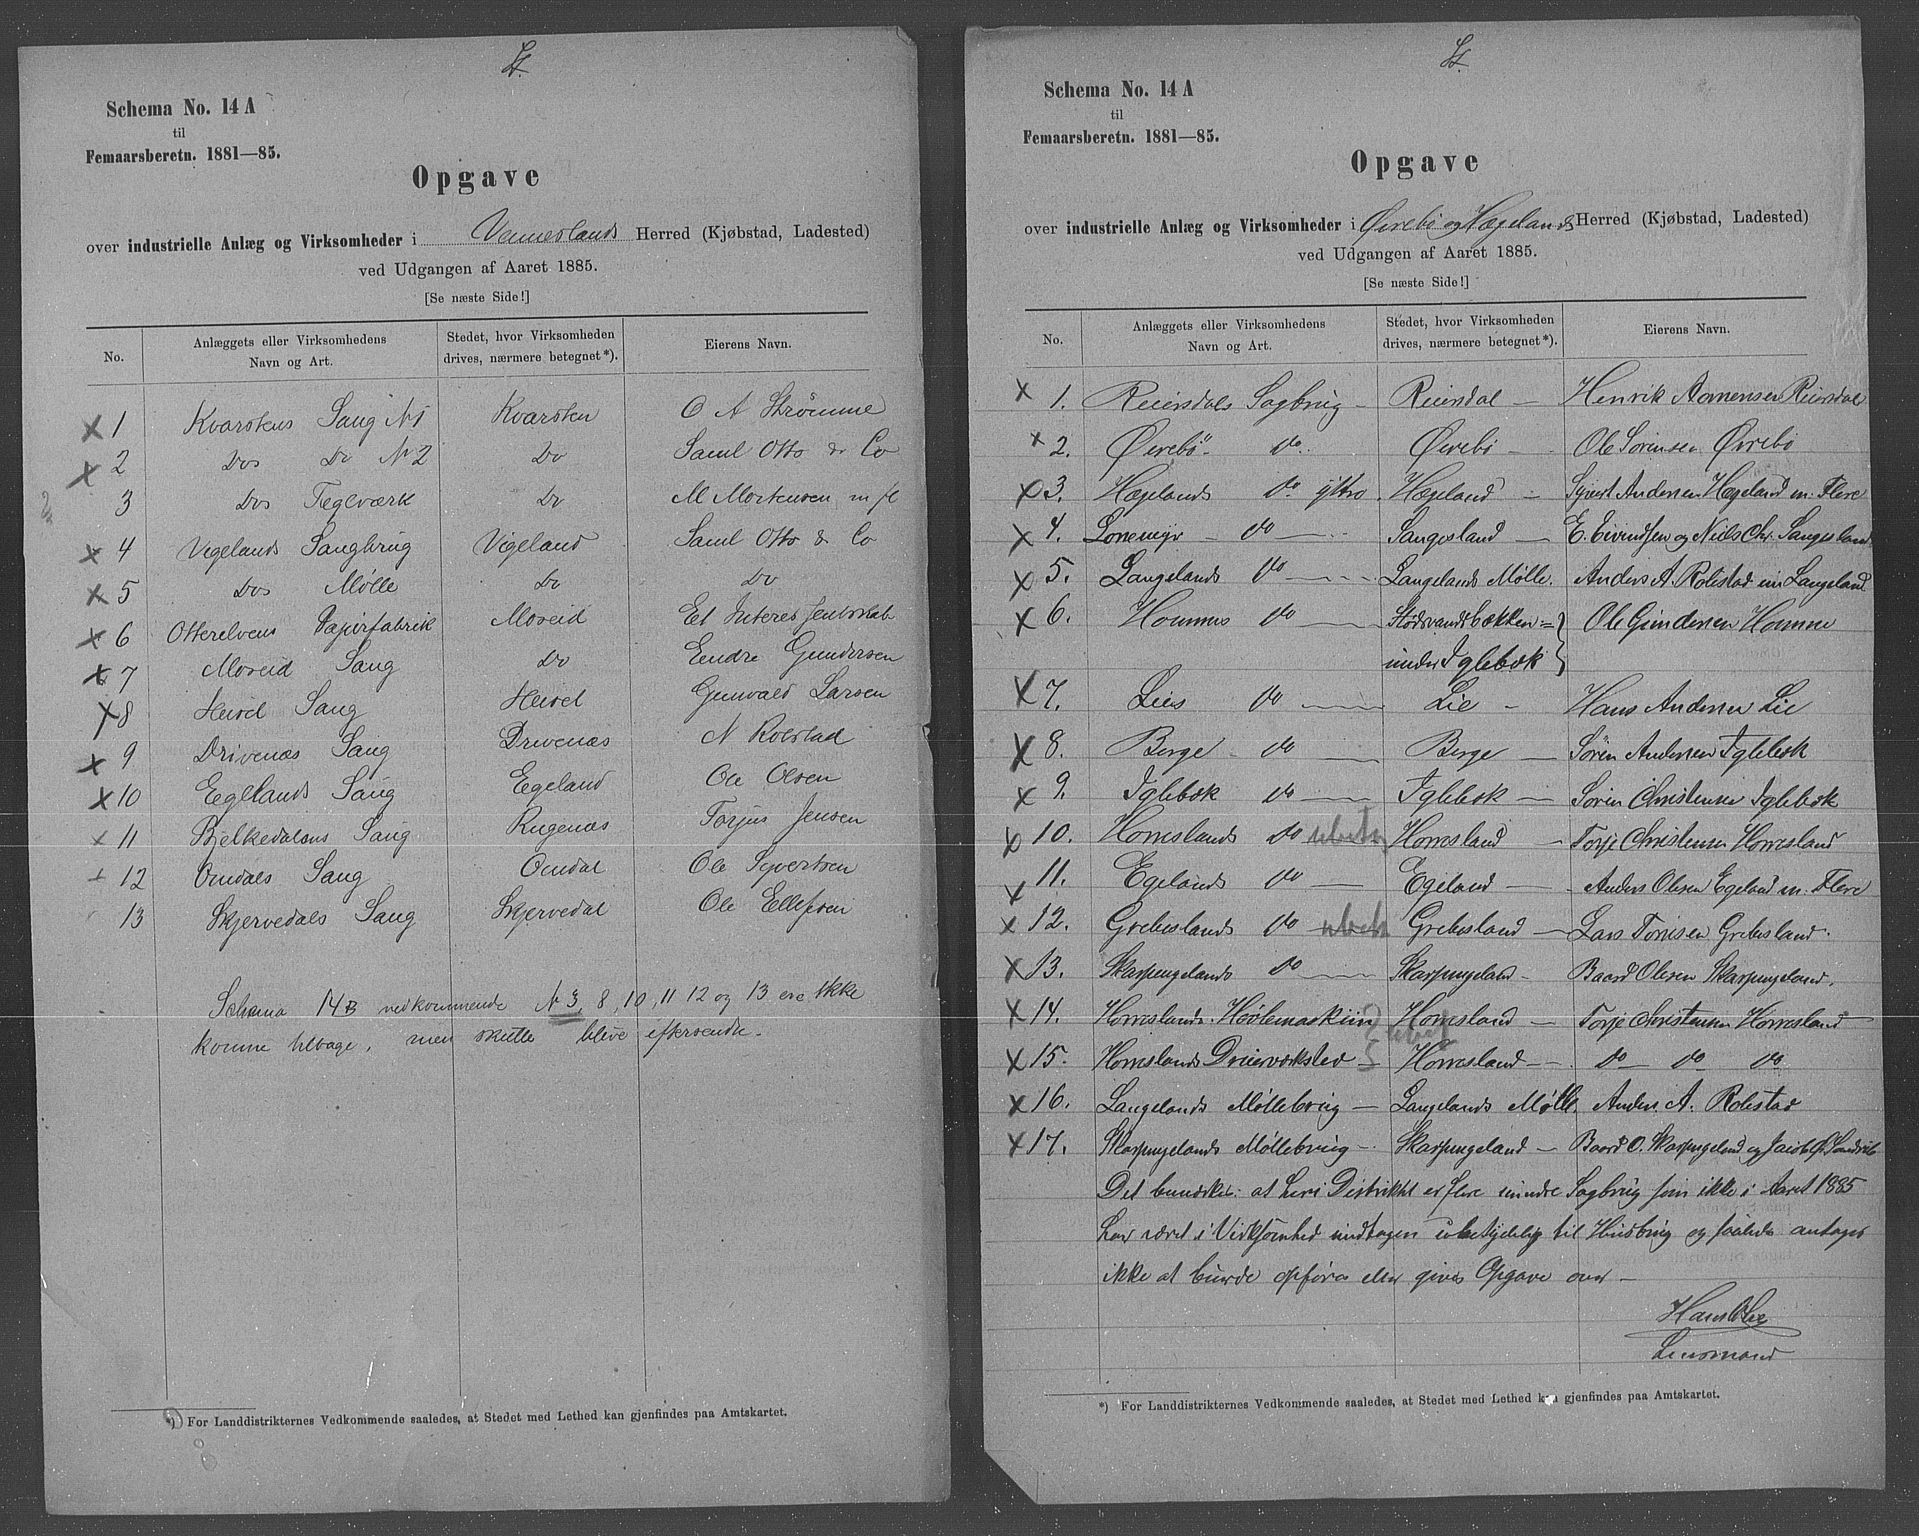 Schema No. 14 A
til
Femaarsberetn. 1881—85.
Opgave
over industrielle Anlæg og Virksomheder i Venneslands Herred (Kjøbstad, Ladested)
ved Udgangen af Aaret 1885.
[Se næste Side!]
No. Anlæggets eller Virksomhedens Navn og Art. Stedet, hvor Virksomheden drives, nærmere betegnet*). Eierens Navn.
1 Kvarstens Saug N1 Kvarsten O A Strömme
2 Dos Do N2 Do Saml Otto & Co
3 Dos Teglværk Do M Mortensen m fl
4 Vigelands Saugbrug Vigeland Saml Otto & Co
5 Dos Mølle Do Do
6 Otterelvens Papirfabrik Moseid Et Interessentskab
7 Moseid Saug Do Eendre Gundersen
8 Heisel Saug Heisel Gunvald Larsen
9 Drivenæs Saug Drivenæs N Rolstad
10 Egelands Saug Egeland Ole Olsen
11 Bjelkedalens Saug Rugenæs Torjus Jensen
12 Omdals Saug Omdal Ole Syvertsen
13 Skjervedals Saug Skjervedal Ole Ellefsen
Schema 14B vedkommende N 3, 8, 10, 11 12 og 13 ere ikke
komne tilbage, men skulle blive eftersendte.
*) For Landdistrikternes Vedkommende saaledes, at Stedet med Lethed kan gjenfindes paa Amtskartet.
Schema No. 14 A
til
Femaarsberetn. 1881—85.
Opgave
over industrielle Anlæg og Virksomheder i Øvrebø og Hægelands Herred (Kjøbstad, Ladested)
ved Udgangen af Aaret 1885.
[Se næste Side!]
No. Anlæggets eller Virksomhedens Navn og Art. Stedet, hvor Virksomheden drives, nærmere betegnet*). Eierens Navn.
1. Reiersdals Sagbrug — Reiersdal — Henrik Aanensen Reiersdal
2. Øvrebö do Øvrebö — Ole Sörensen Øvrebö
3. Hægelands do ytre Hægeland — Syvert Andersen Hægeland m. Flere
4. Lonemyr — do — Sangesland — E. Eivindsen og Niels Chr. Sangesland
5. Langelands do — Langelands Mølle. Anders A. Rolstad
6. Hommes do — under Iglebæk Ole Gundersen Homme
7. Lies do — Lie — Hans Andersen Lie
8. Berge — do — Berge — Sören Andersen Iglebæk
9. Iglebæk do — Iglebæk — Sören Christensen Iglebæk
10. Horrislands do Horrisland — Torje Christensen Horrisland
11. Egelands do — Egeland — Anders Olesen Egeland m. Flere
12. Grebeslands do Grebesland — Lars Grebesland.
13. Skarpengelands do — Skarpengeland — Baard Olesen Skarpengeland.
14. Horrislands Høvlemaskiin Horrisland — Torje Christensen Horrisland
15. Horrislands Dreierværksted Horrisland — do do do
16. Langelands Møllebrug — Langelands Mølle. Anders A. Rolstad
17. Skarpengelands Møllebrug — Skarpengeland — Baard O. Skarpengeland og Jacob
Det bemærkes: at her i Distriktet er flere mindre Sagbrug som ikke i Aaret 1885
har været i Virksomhed undtagen ubetydelig til Huusbrug og saaledes antages
ikke at burde opføres eller gives Opgave over —
Hans Lie
Lensmand
*) For Landdistrikternes Vedkommende saaledes, at Stedet med Lethed kan gjenfindes paa Amtskartet.